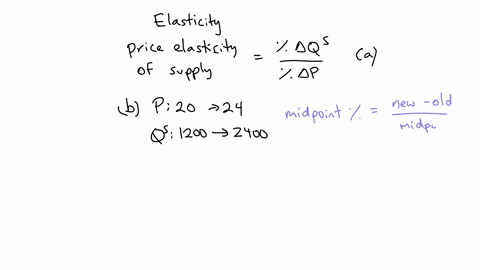 Elasticity
price elasticity of supply = % ΔQˢ / % ΔP (a)
(b) P: 20 → 24
Qˢ: 1200 → 2400
midpoint % = new - old / midpo